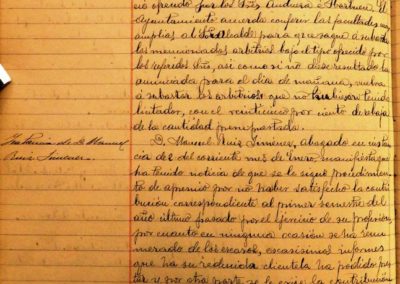 cio ofrecido por los Sres Anduera é Ibarburu. El
Ayuntamiento acuerda conferir las facultades
amplias al Sr Alcalde para que saque á subasta
los mencionados arbitrios bajo el tipo ofrecido por
los referidos Sres, así como si no diese resultado la
anunciada para el día de mañana, vuelva
á subastar los arbitrios que no hubiesen tenido
licitador, con el veinticinco por ciento de rebaja
de la cantidad presupuestada.
Instancia de D. Manuel
Ruiz Jimenez.
D. Manuel Ruiz Jimenez, abogado en instan
cia del del corriente mes de Enero, manifiesta que
ha tenido noticia de que se le sigue procedimien
to de apremio por no haber satisfecho la contri
bución correspondiente al primer semestre del
año último pasado por el ejercicio de su profesión
por cuanto en ninguna ocasión se ha
de los escasos, escasísimos informes
que ha su reducida clientela ha podido pres
tar y por otra parte se le exige la contribución